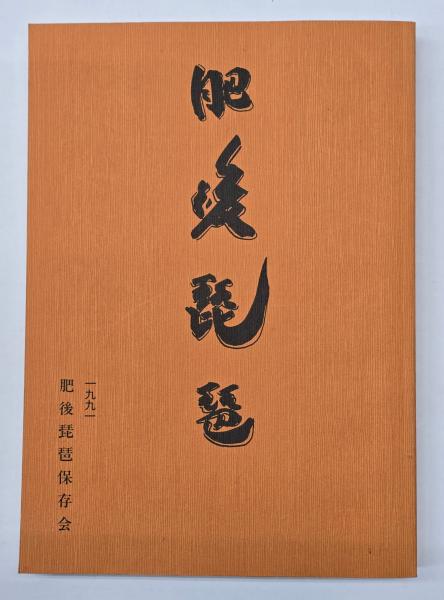 肥後琵琶
一九九一
肥後琵琶保存会